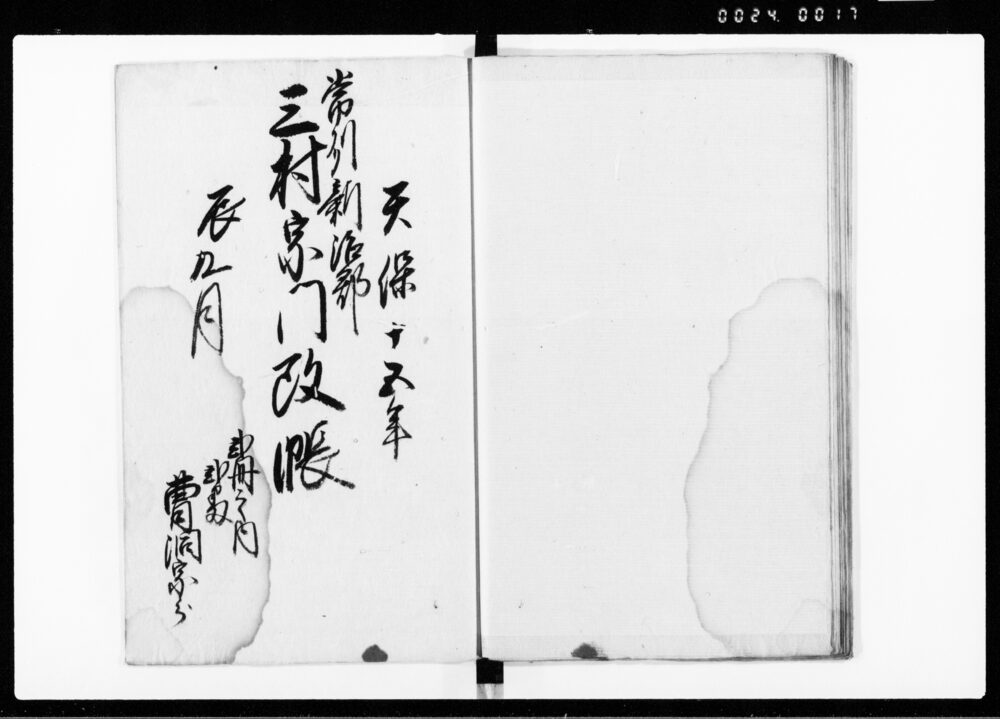 0024 0017
天保十五年
常州新治郡
三村宗門改帳
辰九月
弐冊之内
曹洞宗分